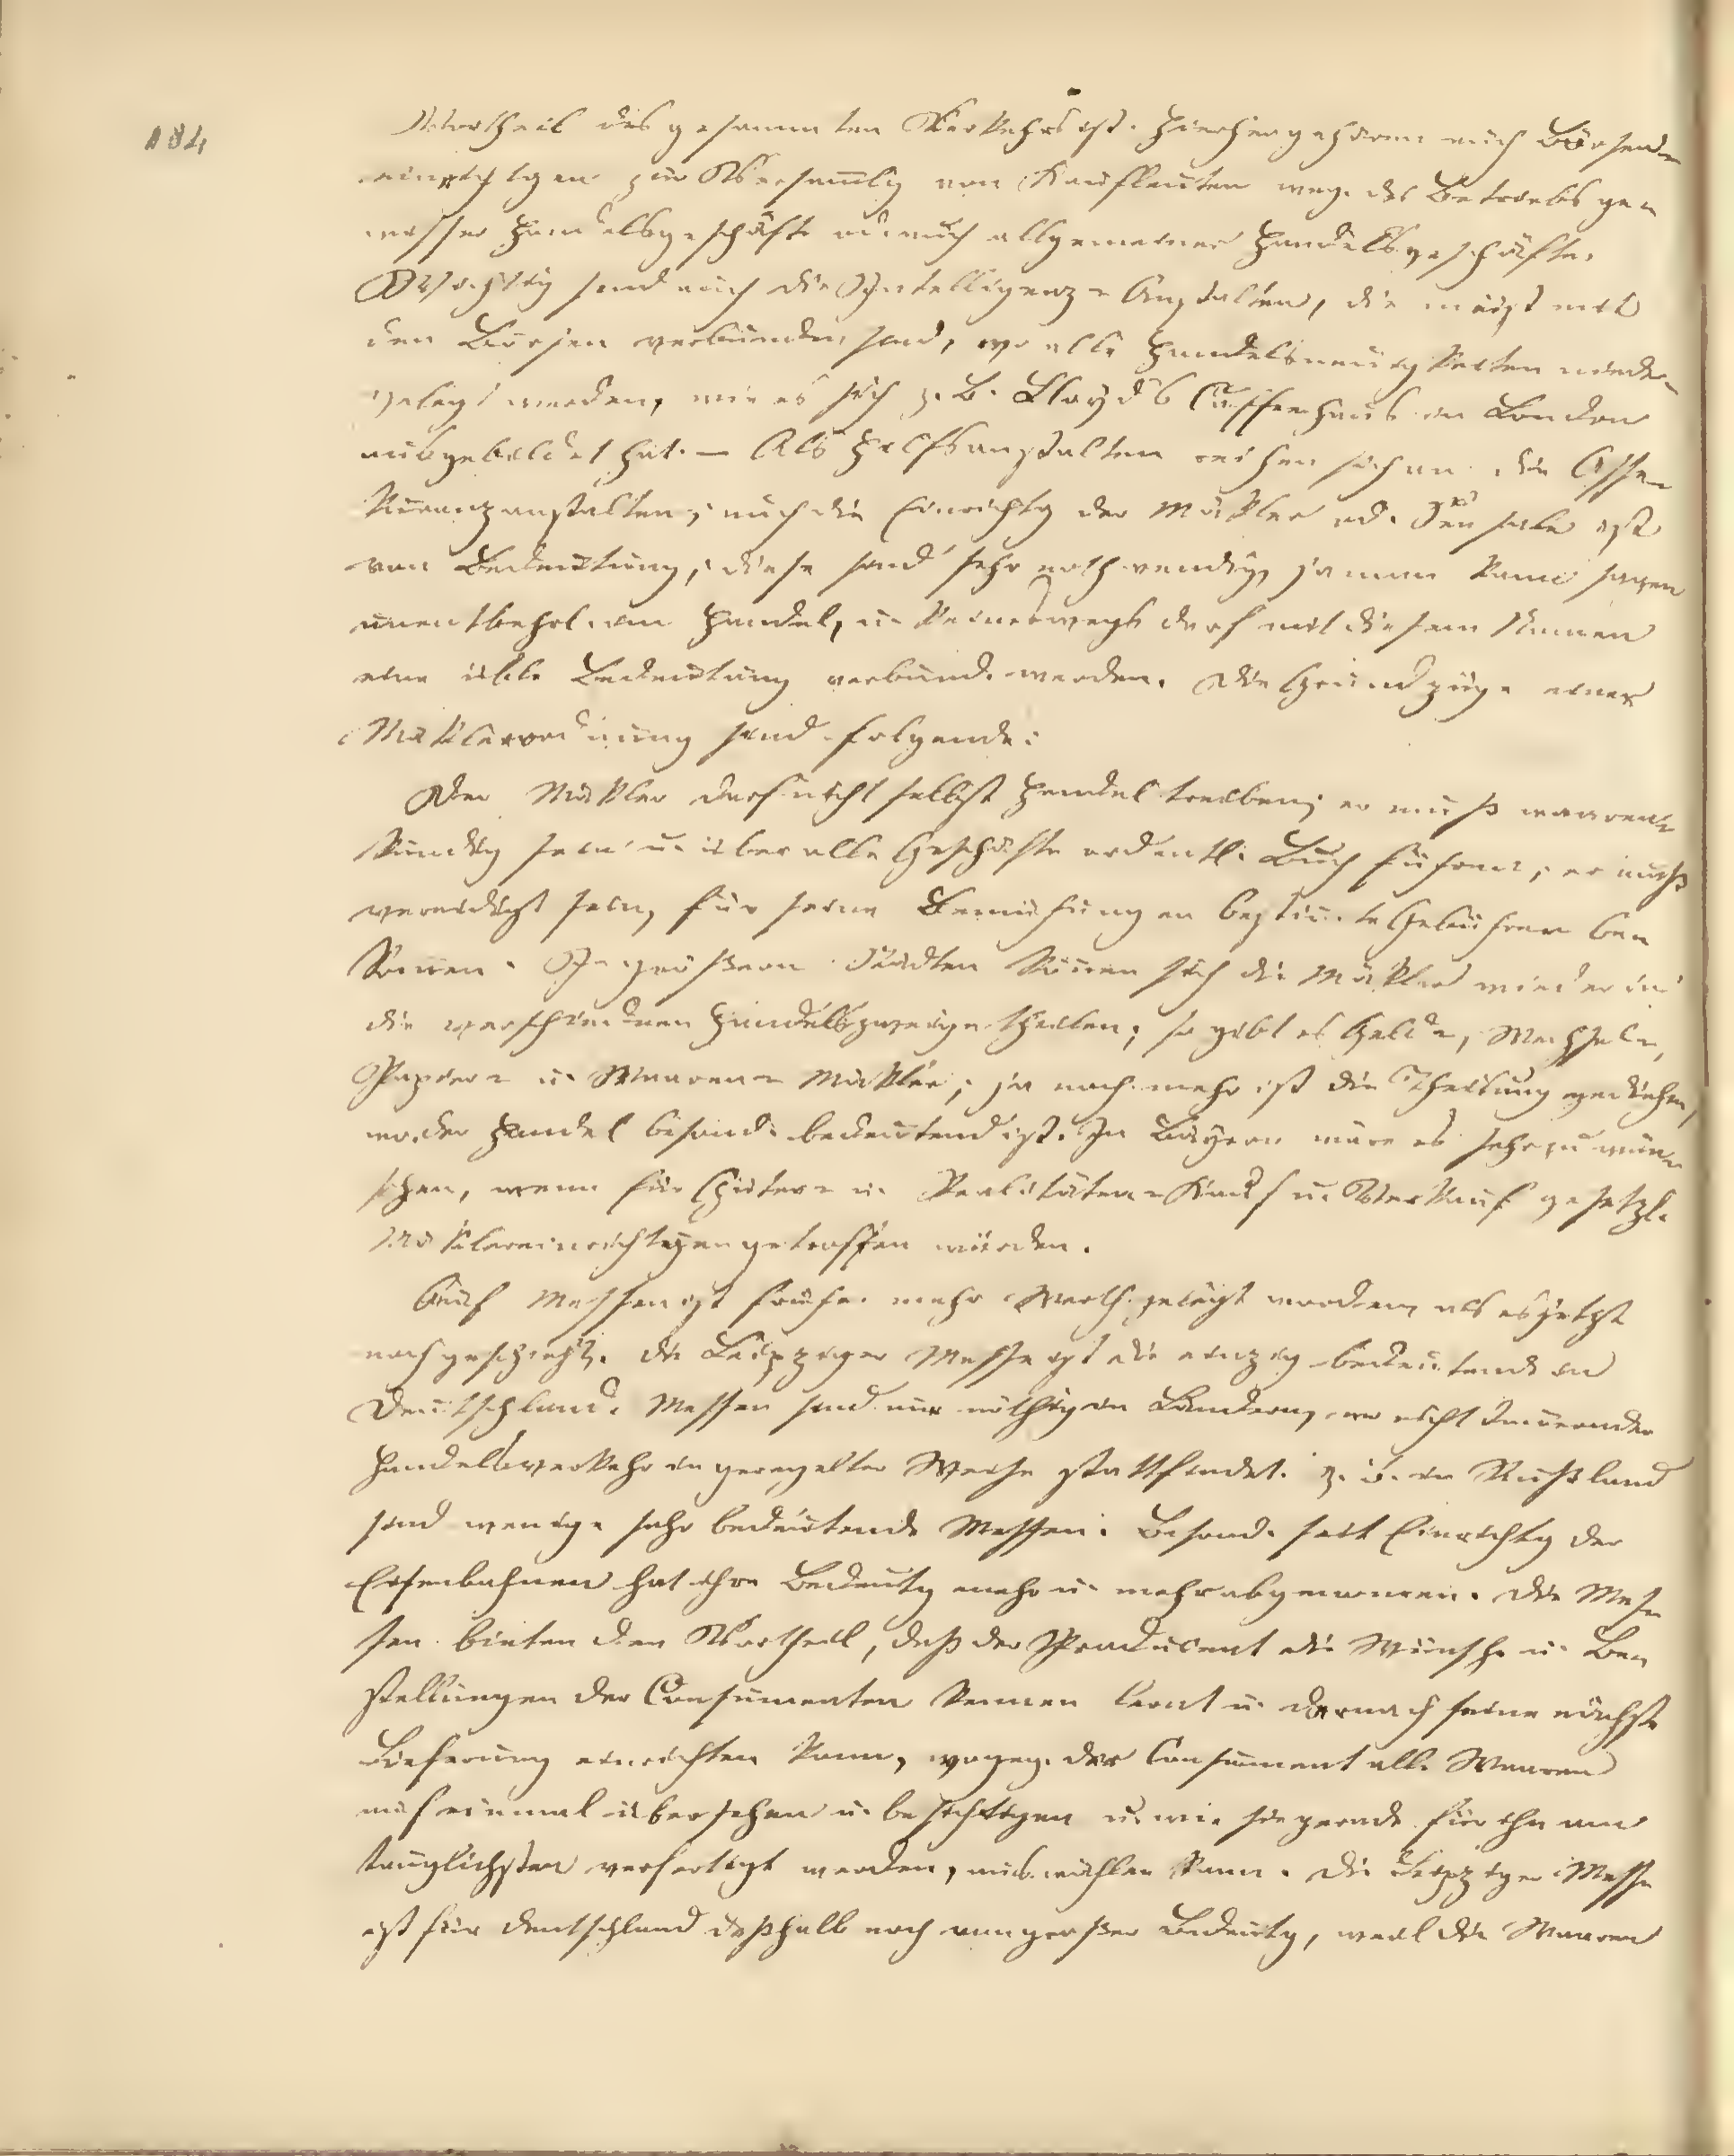 184
Vortheil des gesammten Verkehrs ist. Hierher gehören auch Börsen-
einrichtgen zur Versamlg von Kaufleuten weg. des Betriebs ge-
wisser Handelsgeschäfte od. auch allgemeiner Handelsgeschäfte.
Wichtig sind auch die Intelligenz-Anstalten, die meist mit
den Börsen verbunden sind, wo alle Handelsneuigkeiten nieder-
gelegt werden, wie es sich z. B. Lloyd's Caffeehaus in London
ausgebildet hat. — Als Hilfsanstalten reihen sich an die Asse-
kuranzanstalten; auch die Einrichtg der Mäkler od. Sensale ist
von Bedeutung; diese sind sehr nothwendig, ja man kann sagen
unentbehrl. im Handel, u. keineswegs darf mit diesem Namen
eine üble Bedeutung verbund. werden. Die Grundzüge einer
Mäklerordnung sind folgende:
Der Mäkler darf nicht selbst Handel treiben; er muß waaren-
kundig sein u. über alle Geschäfte ordentl. Buch führen; er muß
vereidigt sein, für seine Bemühungen bestimte Gebühren be-
komen. In größern Städten könen sich die Mäkler wieder in
die verschiednen Handelszweige theilen; so gibt es Geld-, Wechsel-,
Papier- u. Waaren-Mäkler; ja noch mehr ist die Theilung gediehen,
wo der Handel besond. bedeutend ist. In Bayern wäre es sehr zu wün-
schen, wenn für Güter- u. Realitäten-Kauf u. Verkauf gesetzl.
Mäklereinrichtgen getroffen würden.
Auf Messen ist früher mehr Werth gelegt worden, als es jetzt
noch geschieht. Die Leipziger Messe ist die einzig bedeutende in
Deutschland. Messen sind nur nöthig in Ländern, wo nicht dauernder
Handelsverkehr in geregelter Weise stattfindet. z. B. in Rußland
sind wenige sehr bedeutende Messen. Besond. seit Einrichtg der
Eisenbahnen hat ihre Bedeutg mehr u. mehr abgenomen. Die Mes-
sen bieten den Vortheil, daß der Producent die Wünsche u. Be-
stellungen der Consumenten kennen lernt u. darnach seine nächste
Lieferung einrichten kann, wogeg. der Consument alle Waaren
auf einmal übersehen u. besichtigen u. wie sie gerade für ihn am
tauglichsten verfertigt werden, auswählen kann. Die Leipziger Messe
ist für Deutschland deßhalb noch von großer Bedeutg, weil die Waaren